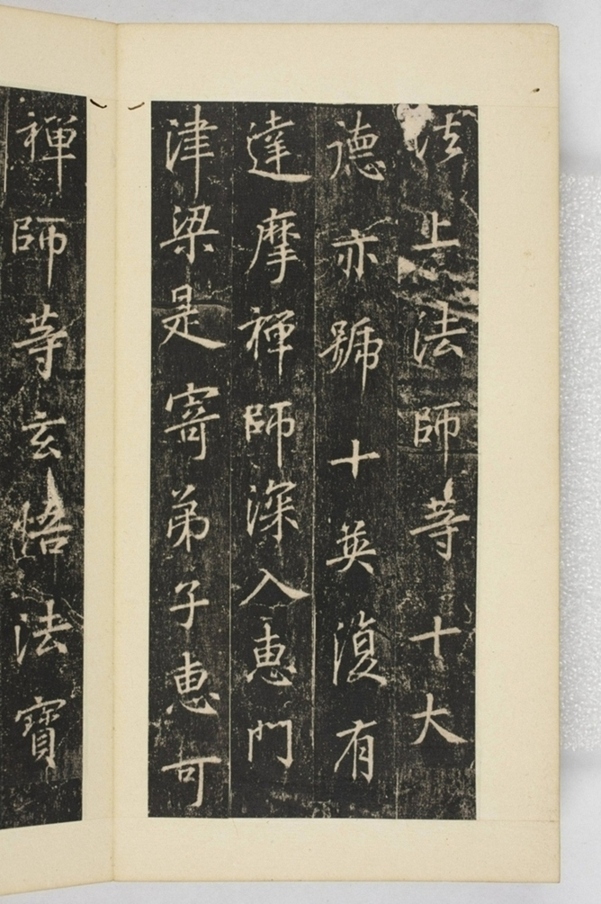 法上法師等十大
德亦號十英復有
達摩禅師深入惠門
津梁是寄弟子惠可
禅師等玄悟法寶